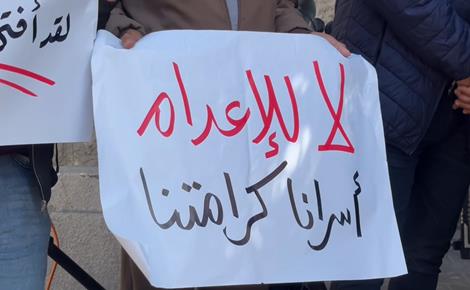 لقد أفتى
لا للإعدام
أسرانا كرامتنا